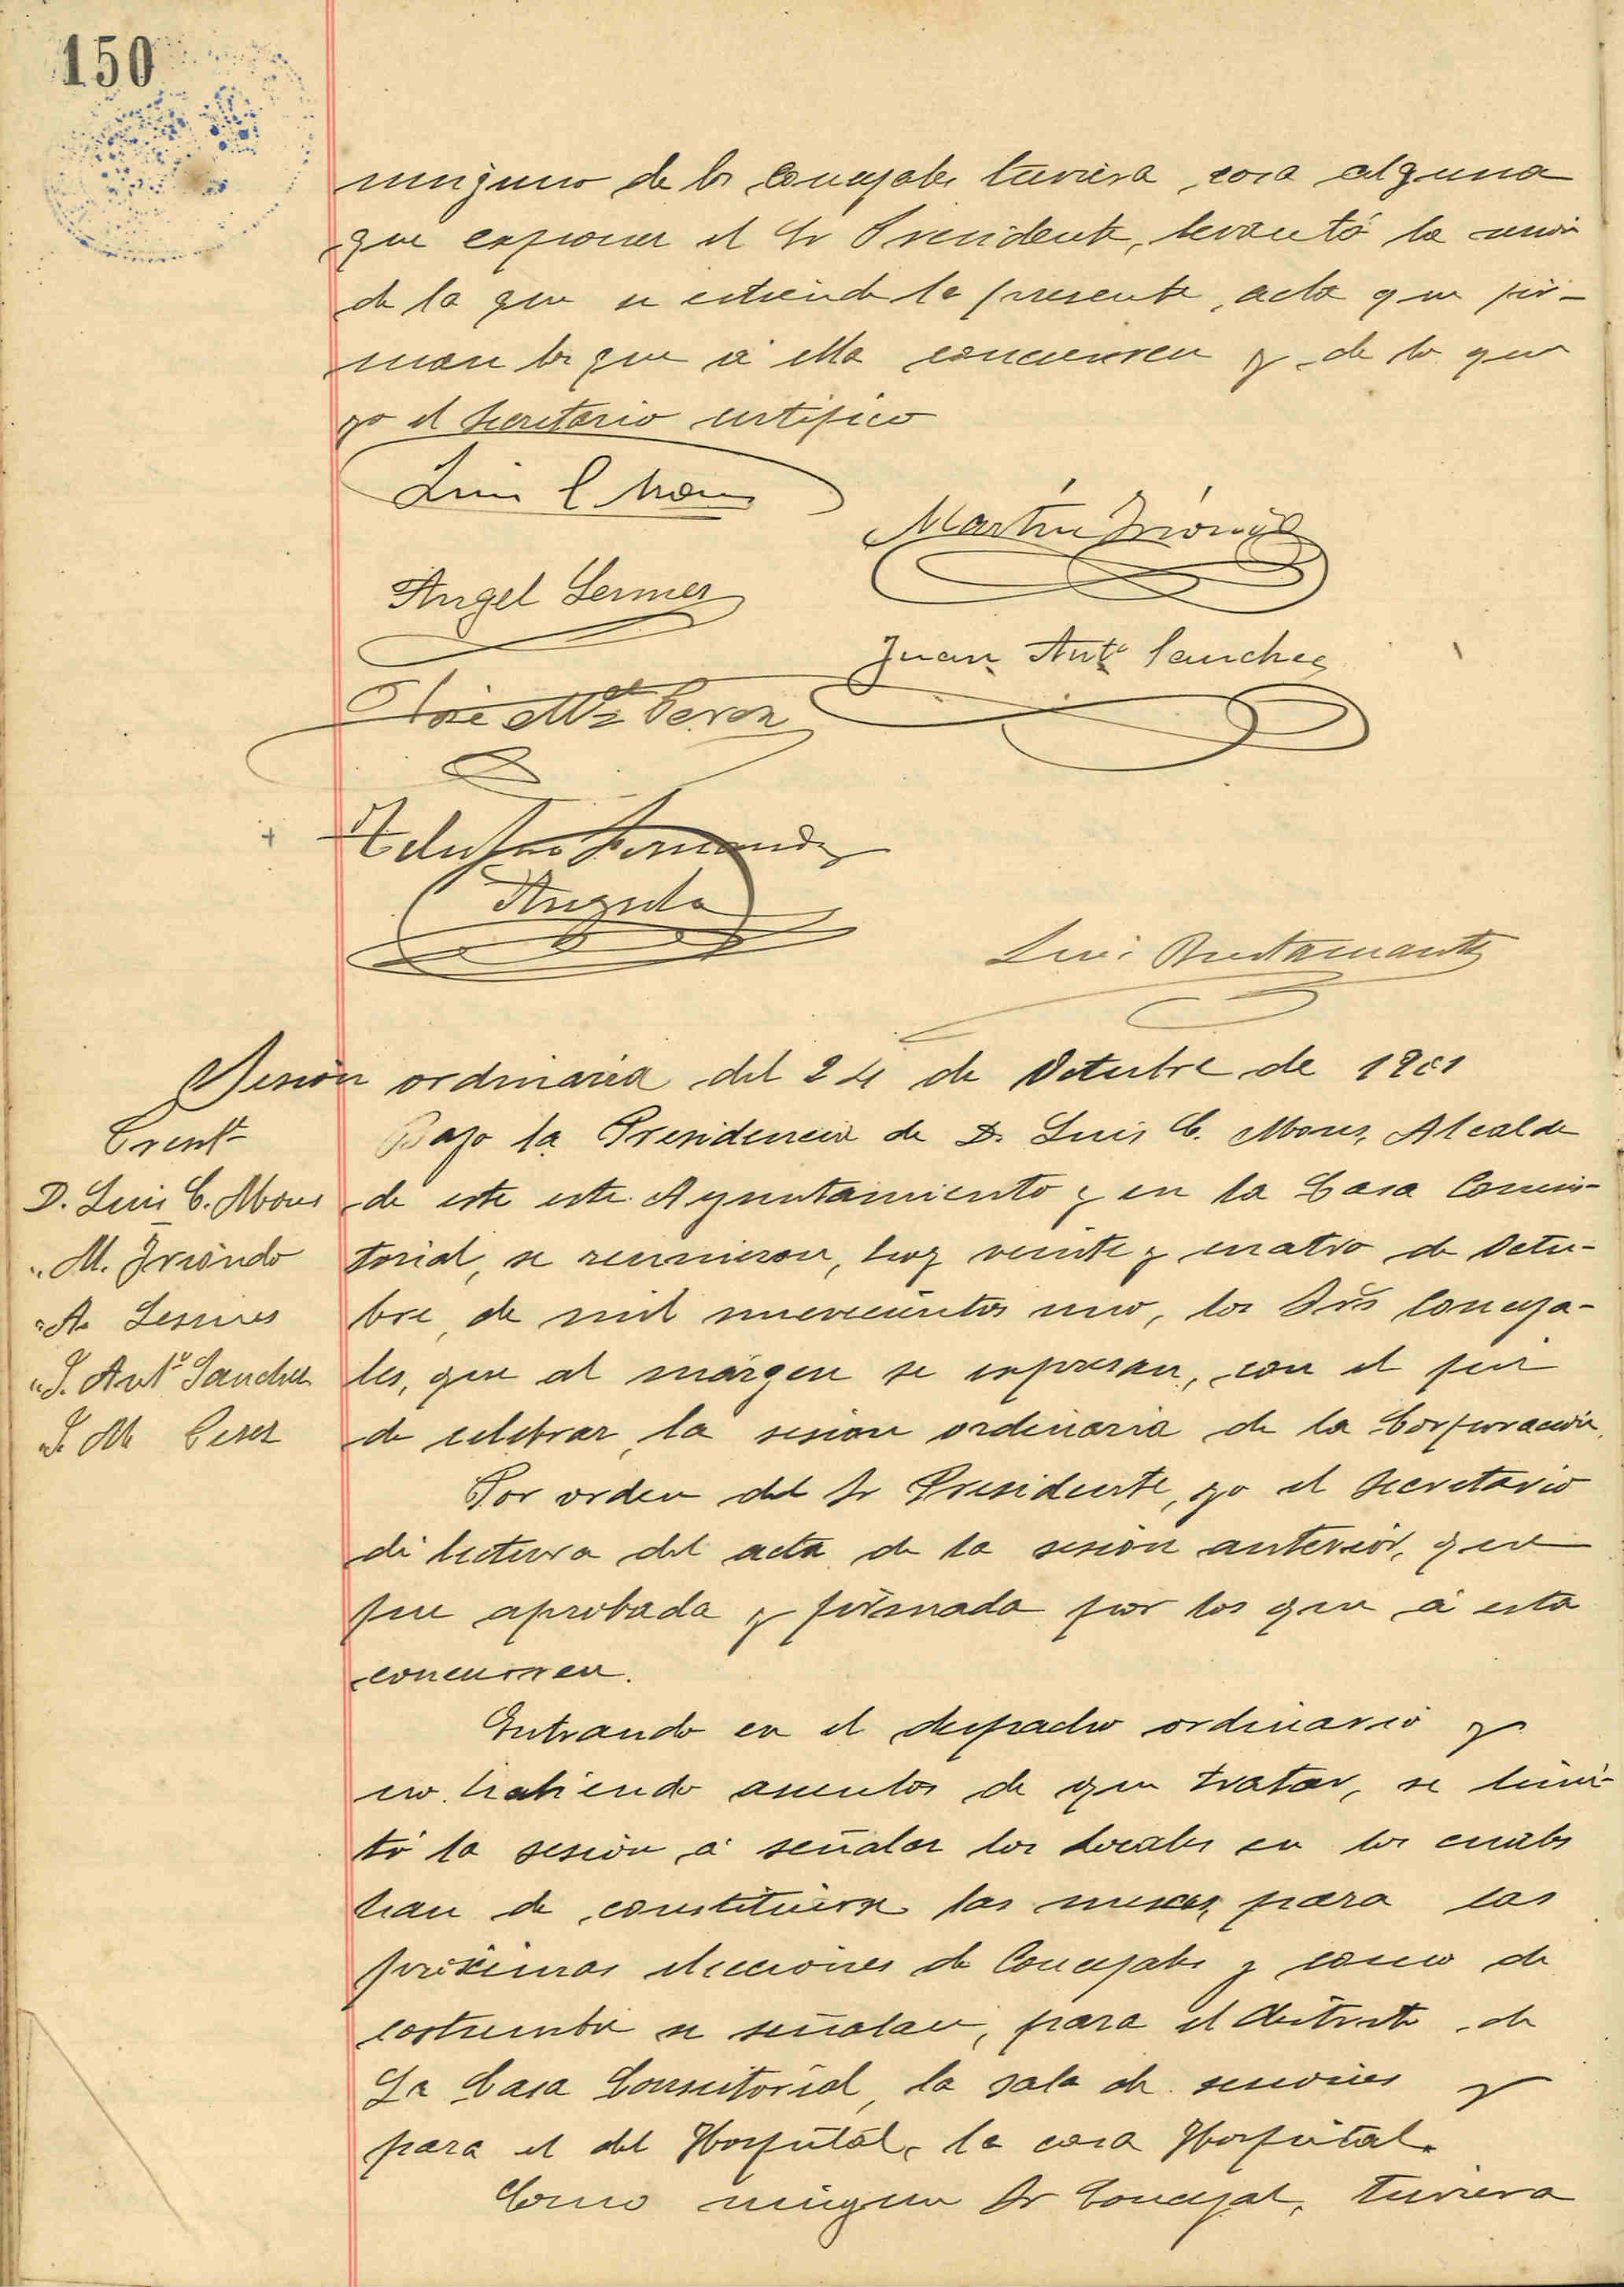 150
ninguno de los Concejales tuviera, cosa alguna
que exponer el Sr Presidente, levantó la sesión
de la que se estiende la presente, acta que fir-
man los que á ella concurren y de lo que
yo el Secretario certifico
Luis C Mons
Martín Iriondo
Angel Lesmes
Juan Antº Sanchez
José Mª Perez
Fernandez
Angulo
Luis Bustamante
Sesión ordinaria del 24 de Octubre de 1901
Present
Bajo la Presidencia de D. Luis C. Mons, Alcalde
D. Luis C. Mons
de este este Ayuntamiento y en la Casa Consis-
" M. Iriondo
torial, se reunieron, hoy veinte y cuatro de Octu-
" A. Lesmes
bre, de mil novecientos uno, los Srs Conceja-
" J. Antº Sanchez
les, que al margen se expresan, con el fin
" J. M. Perez
de celebrar, la sesión ordinaria de la Corporación.
Por orden del Sr Presidente, yo el Secretario
di lectura del acta de la sesión anterior, que
fue aprobada y firmada por los que á esta
concurren.
Entrando en el despacho ordinario y
no habiendo asuntos de que tratar, se limi-
tó la sesión á señalar los locales en los cuales
han de constituirse las mesas, para las
próximas elecciones de Concejales y como de
costumbre se señalan, para el distrito de
La Casa Consistorial, la sala de sesiones y
para el del Hospital, la casa Hospital.
Como ningun Sr Concejal, tuviera